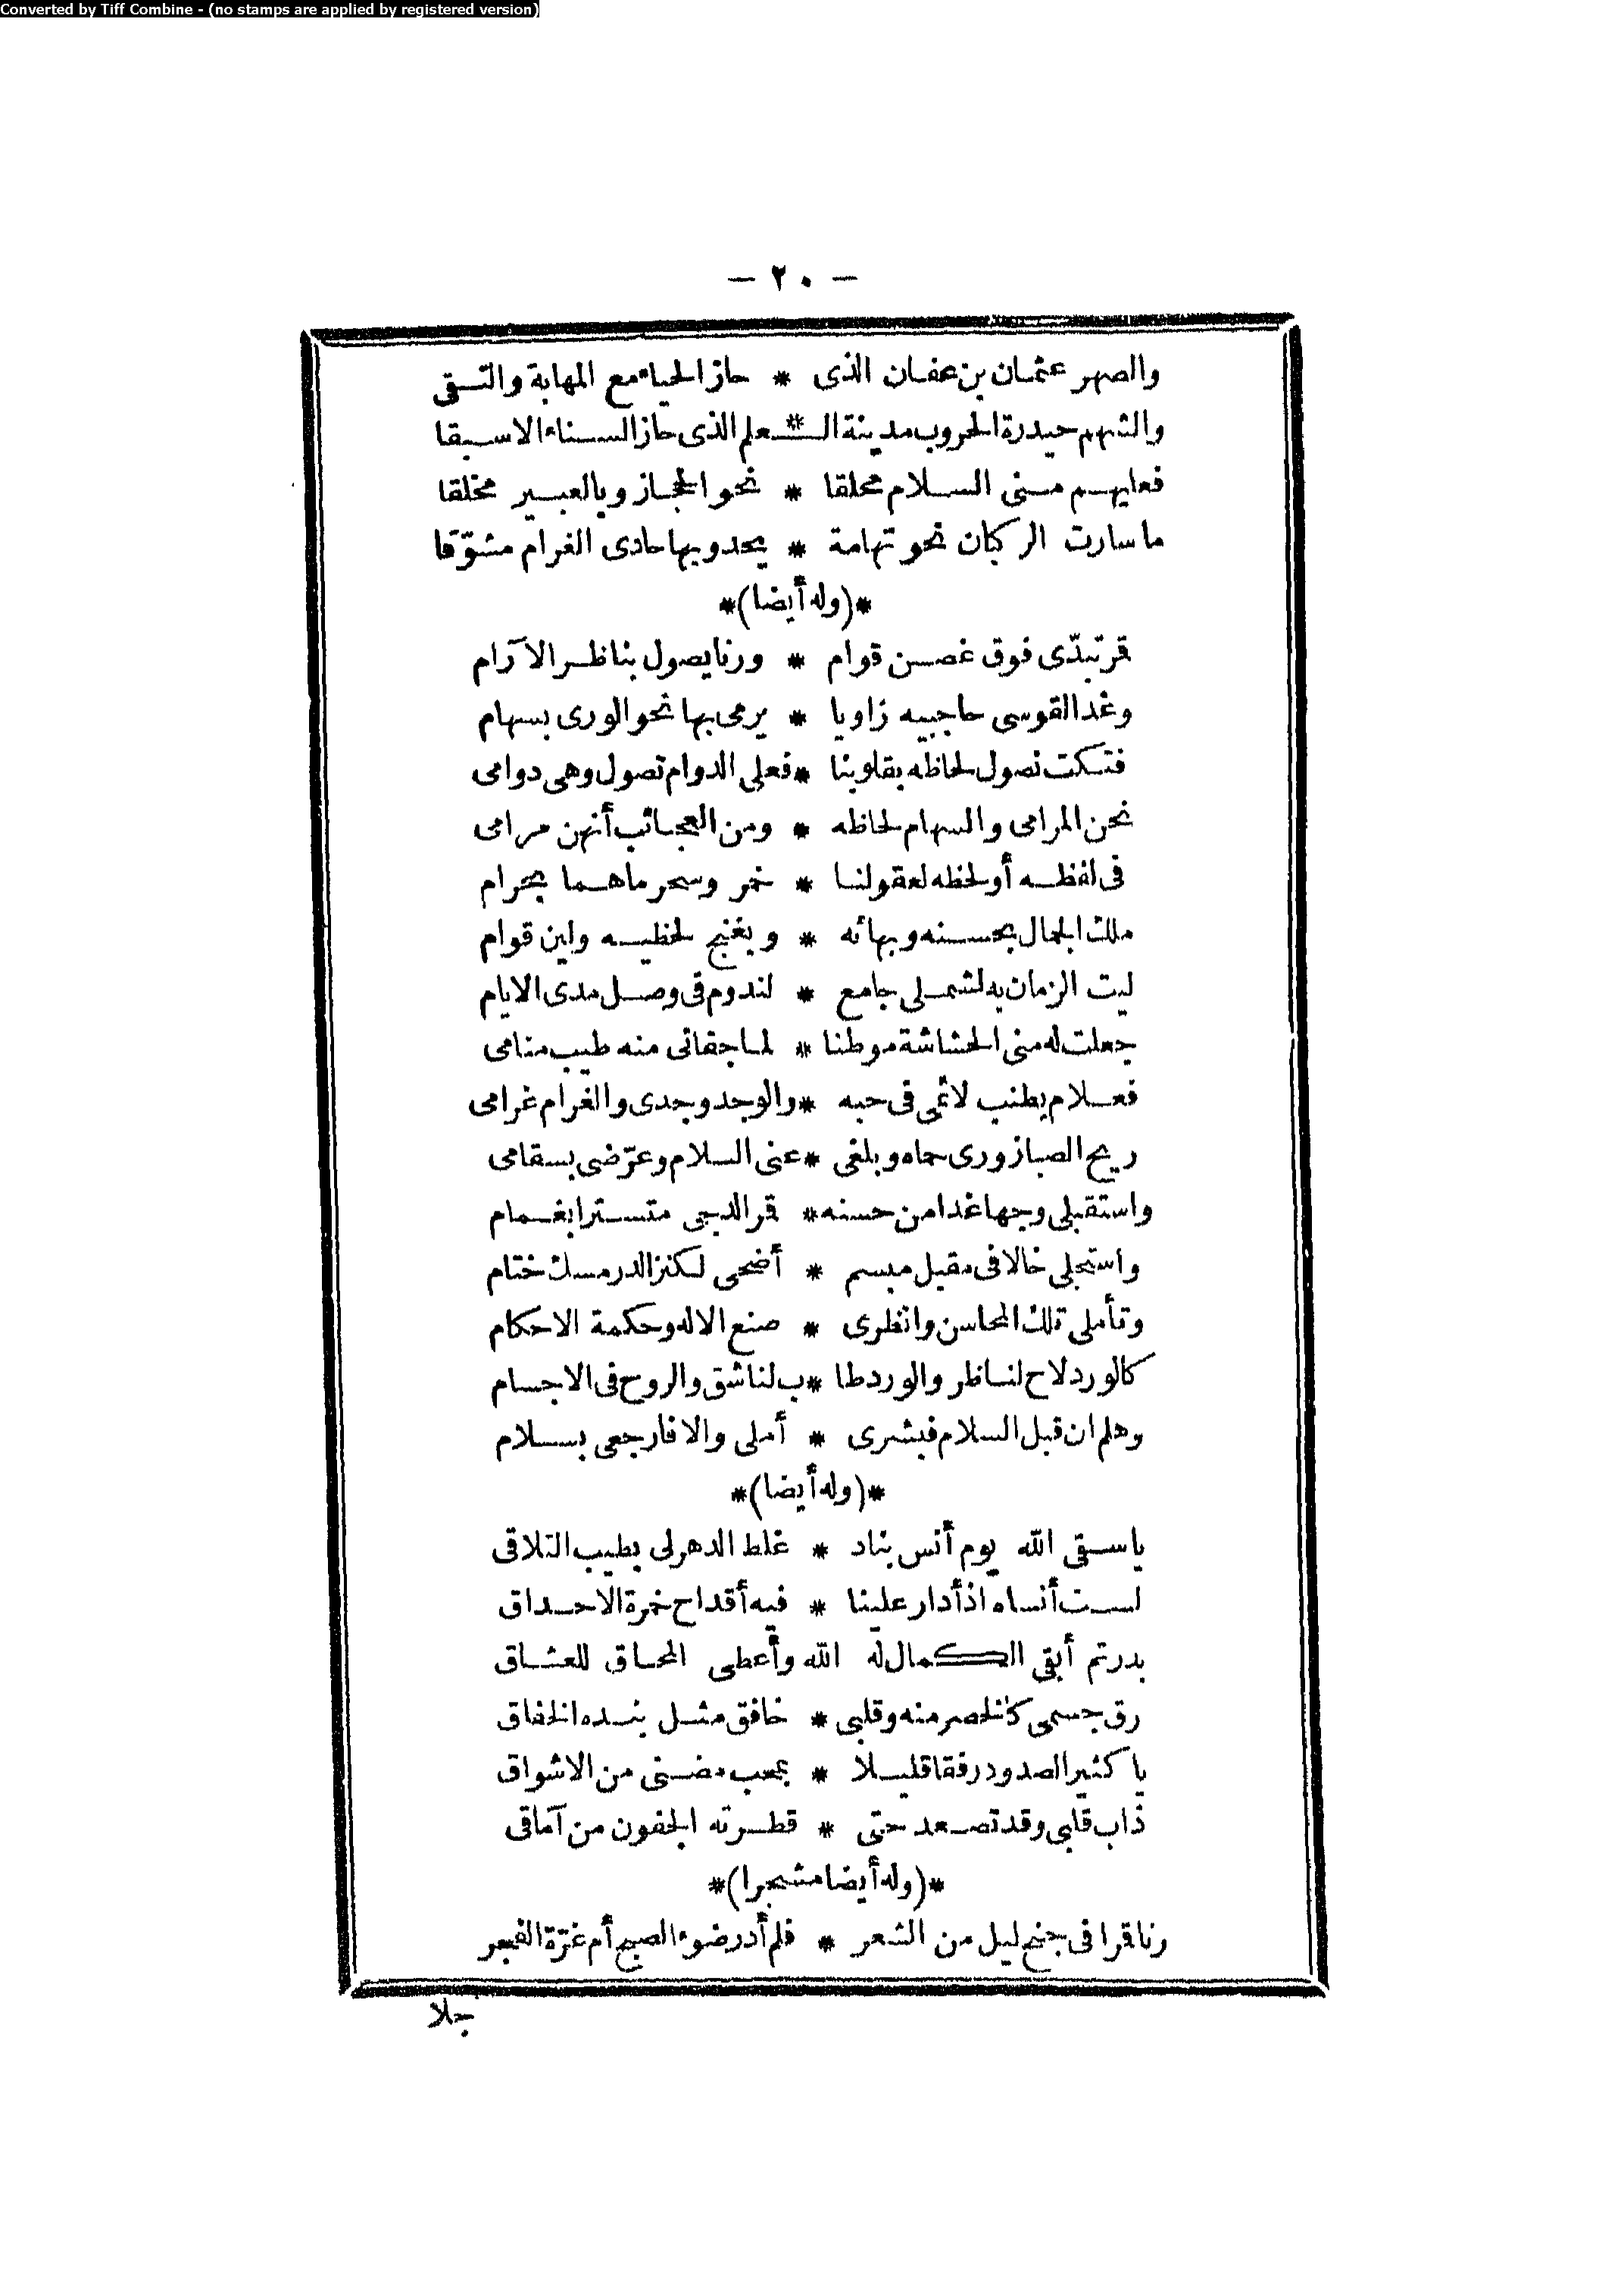 Converted by Tiff Combine - (no stamps are applied by registered version)
— ٢٠ —
والصهر عثمان بن عفان الذى * حاز الحياء مع المهابة والتقى
والشهم حيدرة الحروب مدينة الـ * ـعلم الذى حاز السناء الاسبقا
فعليهم منى السلام محلقا * نحو الحجاز وبالعبير مخلقا
ما سارت الركبان نحو تهامة * يحدو بها حادى الغرام مشوّقا
*(وله أيضا)*
قمر تبدّى فوق غصن قوام * ورنا يصول بناظر الآرام
وغدا لقوسى حاجبيه زاويا * يرمى بها نحو الورى بسهام
فتكت نصول لحاظه بقلوبنا * فعلى الدوام تصول وهى دوامى
نحن المرامى والسهام لحاظه * ومن العجائب أنهن مرامى
فى لفظه أو لحظه لعقولنا * خمر وسحر ما هما بحرام
ملك الجمال بحسنه وبهائه * وبغنج لحظيه ولين قوام
ليت الزمان به لشملى جامع * لندوم فى وصل مدى الايام
جعلت له منى الحشاشة موطنا * لما جفانى منه طيب منامى
فعلام يطنب لائمى فى حبه * والوجد وجدى والغرام غرامى
ريح الصبا زورى حماه وبلغى * عنى السلام وعرّضى بسقامى
واستقبلى وجها غدا من حسنه * قمر الدجى متسترا بغمام
واستجلى خالا فى مقبل مبسم * أضحى لكنز الدر مسك ختام
وتأملى تلك المحاسن وانظرى * صنع الاله وحكمة الاحكام
كالورد لاح لناظر والورد طا * ب لناشق والروح فى الاجسام
وهلم ان قبل السلام فبشرى * أملى والا فارجعى بسلام
*(وله أيضا)*
يا سقى الله يوم أنس بناد * غلط الدهر لى بطيب التلاقى
لست أنساه اذ أدار علينا * فيه أقداح خمرة الاحداق
بدرتم أبقى الكمال له الله وأعطى المحاق للعشاق
رق جسمى كالخصر منه وقلبى * خافق مثل بنده الخفاق
يا كثير الصدود رفقا قليلا * بمحب مضنى من الاشواق
ذاب قلبى وقد تصعد حتى * قطرته الجفون من آماقى
*(وله أيضا مشجرا)*
رنا قمرا فى جنح ليل من الشعر * فلم أدر ضوء الصبح أم غرّة الفجر
جلا